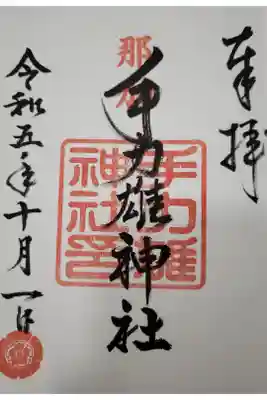 奉拝
手力雄神社
手力雄
神社印
令和五年十月一日